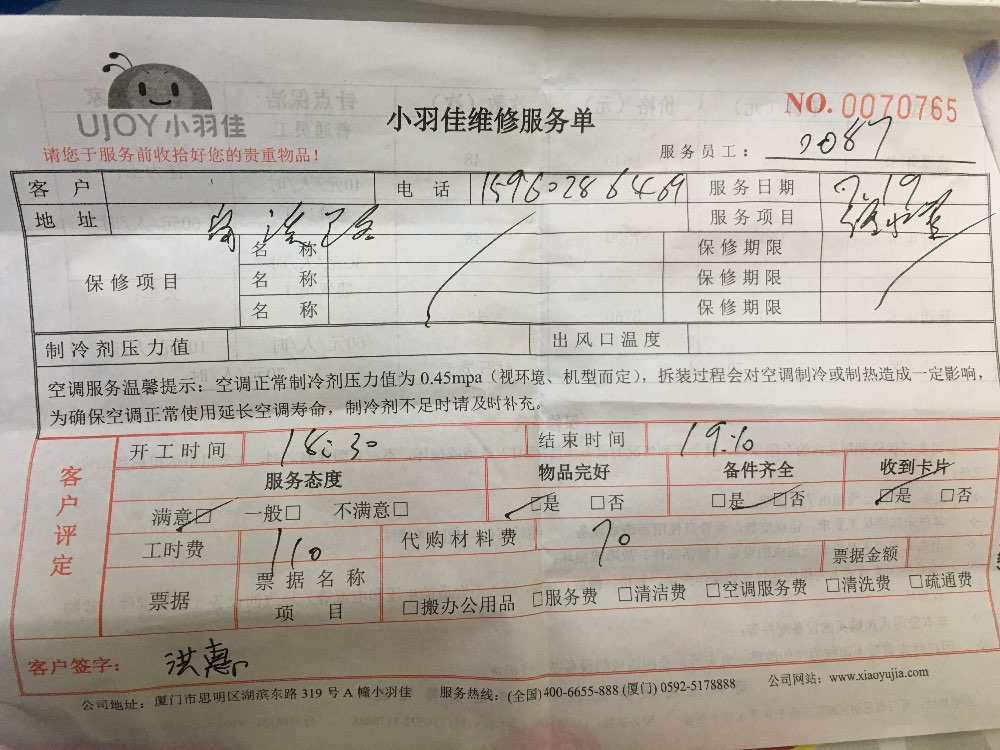 UJOY小羽佳
小羽佳维修服务单
NO. 0070765
请您于服务前收拾好您的贵重物品！
服务员工：
客 户 电 话 15960286469 服务日期 7.19
地 址 服务项目
保修项目 名 称 保修期限
名 称 保修期限
名 称 保修期限
制冷剂压力值 出风口温度
空调服务温馨提示：空调正常制冷剂压力值为 0.45mpa（视环境、机型而定），拆装过程会对空调制冷或制热造成一定影响，
为确保空调正常使用延长空调寿命，制冷剂不足时请及时补充。
客户评定
开工时间 18:30 结束时间 19:10
服务态度 物品完好 备件齐全 收到卡片
满意□ 一般□ 不满意□ □是 □否 □是 □否 □是 □否
工时费 110 代购材料费 70 票据金额
票据 票据名称
项 目 □搬办公用品 □服务费 □清洁费 □空调服务费 □清洗费 □疏通费
客户签字： 洪惠
公司地址：厦门市思明区湖滨东路 319 号 A 幢小羽佳 服务热线：(全国)400-6655-888 (厦门) 0592-5178888 公司网站：www.xiaoyujia.com